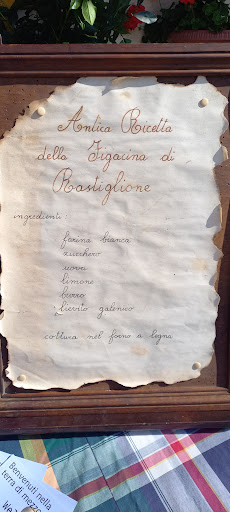 Antica Ricetta
della Figacina di
Rastiglione
ingredienti:
farina bianca
zucchero
uova
limone
burro
lievito galenico
cottura nel forno a legna
Benvenuti nella
terra di